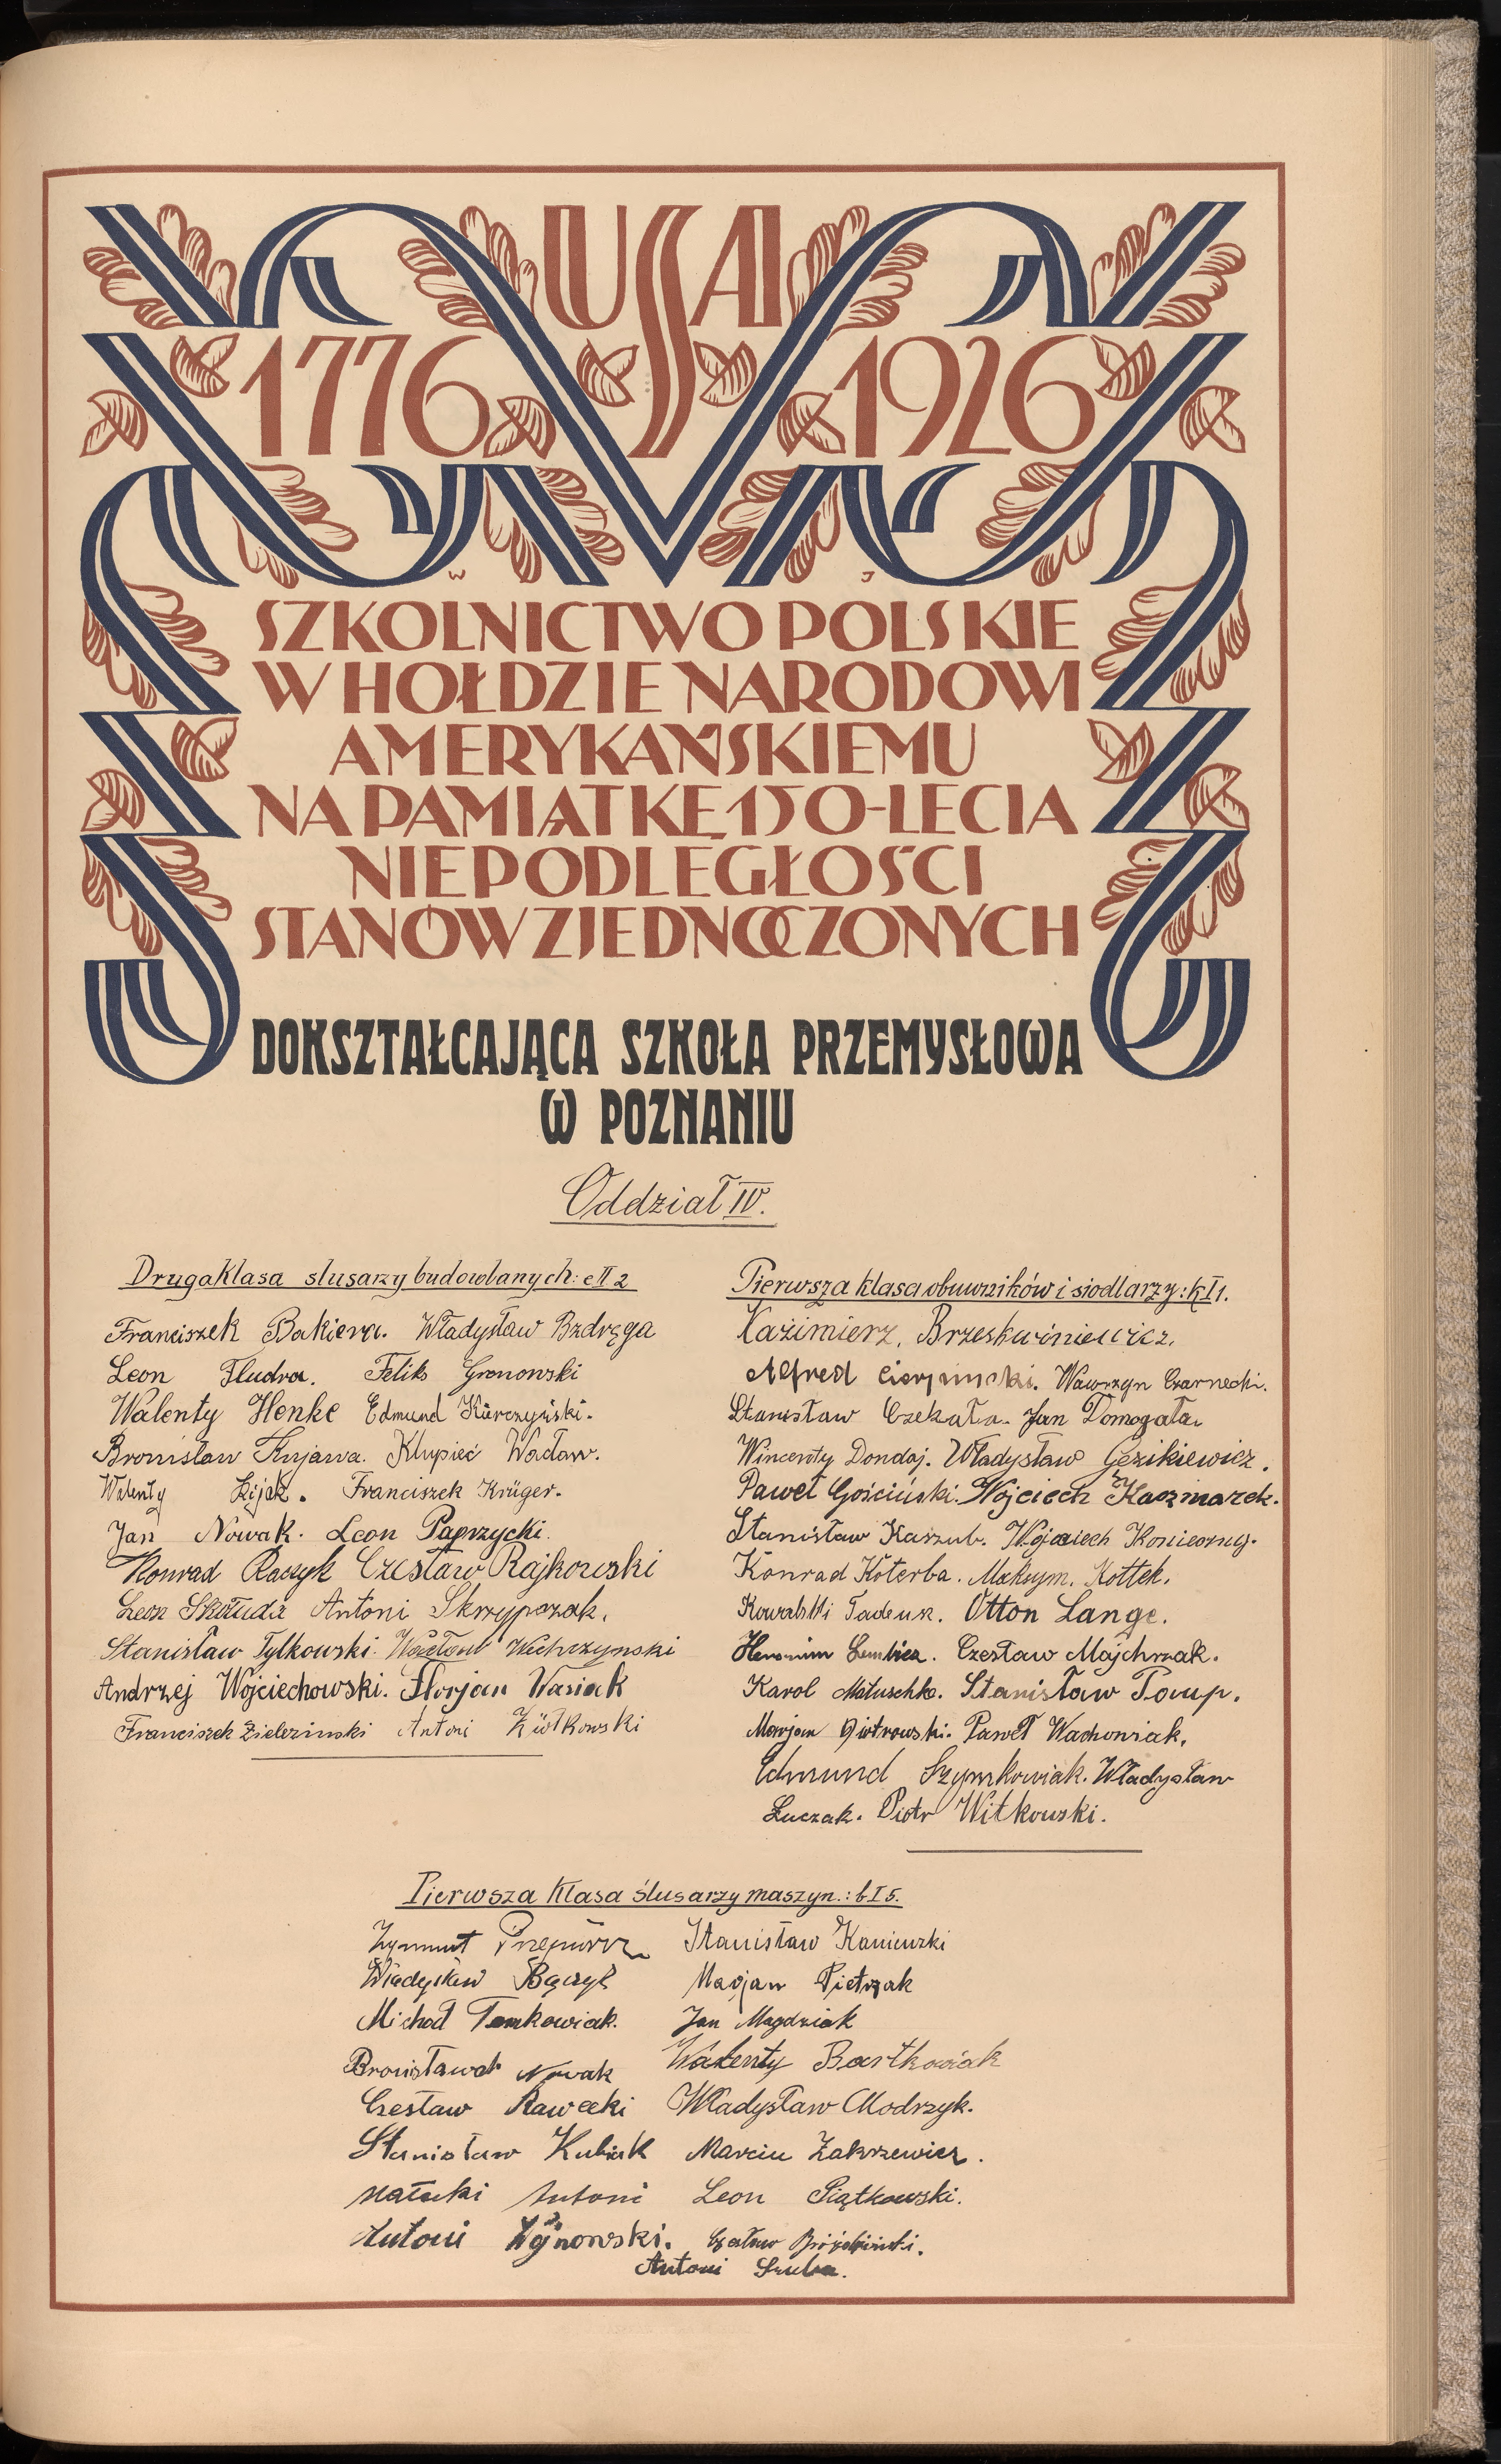 USA
1776 1926
W J
SZKOLNICTWO POLSKIE
W HOŁDZIE NARODOWI
AMERYKAŃSKIEMU
NA PAMIĄTKĘ 150-LECIA
NIEPODLEGŁOŚCI
STANÓW ZJEDNOCZONYCH
DOKSZTAŁCAJĄCA SZKOŁA PRZEMYSŁOWA
W POZNANIU
Oddział IV.
Druga Klasa slusarzy budowlanych: e II 2
Franciszek Bakiera. Władysław Bzdręga
Leon Fludra. Feliks Gronowski
Walenty Henke Edmund Karczyński.
Bronisław Kujawa. Klupieć Wacław.
Walenty Kijak. Franciszek Krüger.
Jan Nowak. Leon Paprzycki.
Konrad Raczyk Czesław Rajkowski
Leon Skołuda Antoni Skrzypczak.
Stanisław Tylkowski. Wacław Wichrzynski
Andrzej Wojciechowski. Florjan Wasiak
Franciszek Zielezinski Antoni Ziółkowski
Pierwsza klasa obuwników i siodlarzy: k I 1.
Kazimierz. Brzeskwiniewicz.
Alfred Cierpinski. Wawrzyn Czarnecki.
Stanisław Czekała. Jan Domagała.
Wincenty Dondaj. Władysław Gezikiewicz.
Paweł Gościński. Wojciech Kaczmarek.
Stanisław Kaszub. Wojciech Konieczny.
Konrad Koterba. Maksym. Kottek.
Kowalski Tadeusz. Otton Lange.
Heronim Lembicz. Czesław Majchrzak.
Karol Matuschke. Stanisław Poup.
Marjan Piotrowski. Paweł Wachowiak.
Edmund Szymkowiak. Władysław
Łuczak. Piotr Witkowski.
Pierwsza Klasa ślusarzy maszyn.: b I 5.
Zygmunt Stanisław Kaniewski
Władysław Bączyk Marjan Pietrzak
Michał Tomkowiak. Jan Magdziak
Bronisław Nowak Walenty Bartkowiak
Czesław Rawecki Władysław Modrzyk.
Stanisław Kubiak Marcin Zakrzewicz.
Małecki Antoni Leon Piątkowski.
Antoni Wojnowski. Czesław
Antoni Szuba.